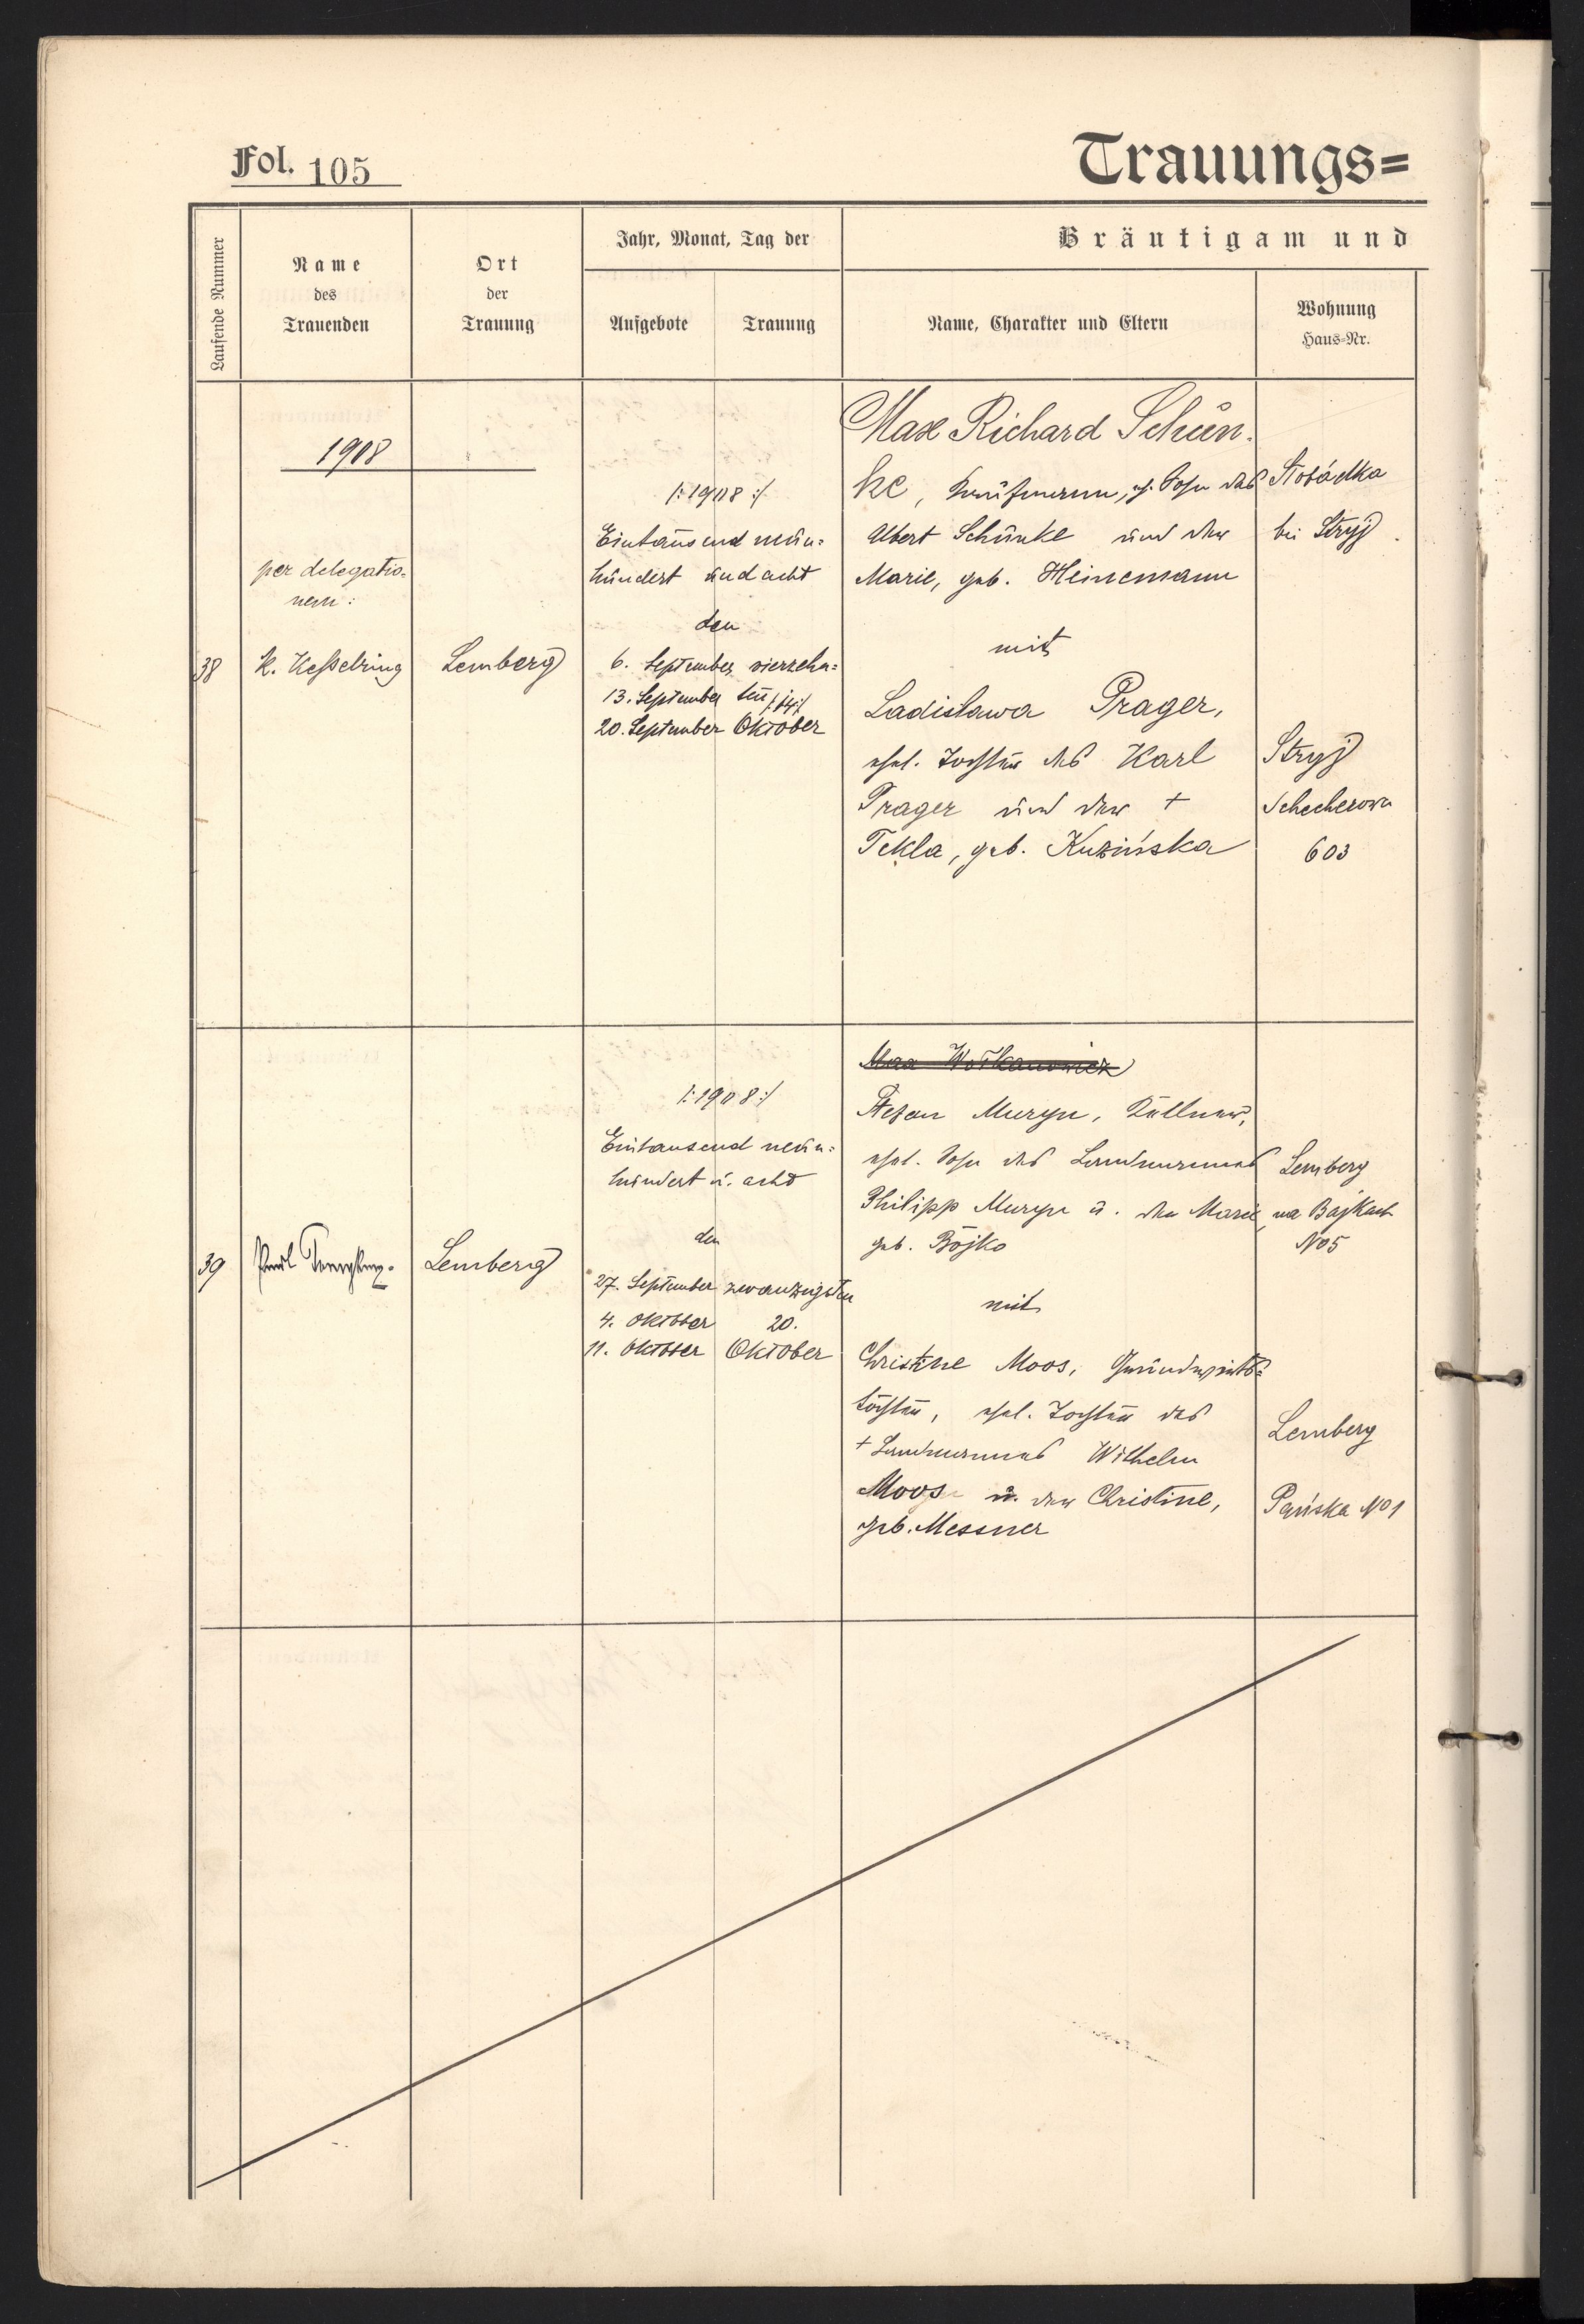 Fol. 105
Trauungs=
Laufende Nummer
Name
des
Trauenden
Ort
der
Trauung
Jahr, Monat, Tag der
Aufgebote
Trauung
Bräutigam und
Name, Charakter und Eltern
Wohnung
Haus-Nr.
1908
38
per delegatio-
nem:
K. Keßelring
Lemberg
/:1908:/
Eintausend neun-
hundert und acht
den
6. September
13. September
20. September
vierzehn-
ten /:14:/
Oktober
Max Richard Schün-
ke, Kaufmann, ehl. Sohn des
Albert Schünke und der
Marie, geb. Heinemann
mit
Ladislawa Prager,
ehel. Tochter des Karl
Prager und der +
Tekla, geb. Kuzińska
bei Stryj.
Stryj
603
39
Lemberg
/:1908:/
Eintausend neun-
hundert u. acht
den
27. September
4. Oktober
11. Oktober
zwanzigsten
20.
Oktober
Stefan Muryn, Kellner,
ehel. Sohn des Landmannes
Philipp Muryn u. der Marie
geb. Bojko
mit
Christine Moos, Grundwirts-
tochter, ehel. Tochter des
+ Landmannes Wilhelm
Moos u. der Christine,
geb. Messner
Lemberg
na Bajkach
No 5
Lemberg
Pańska No 1